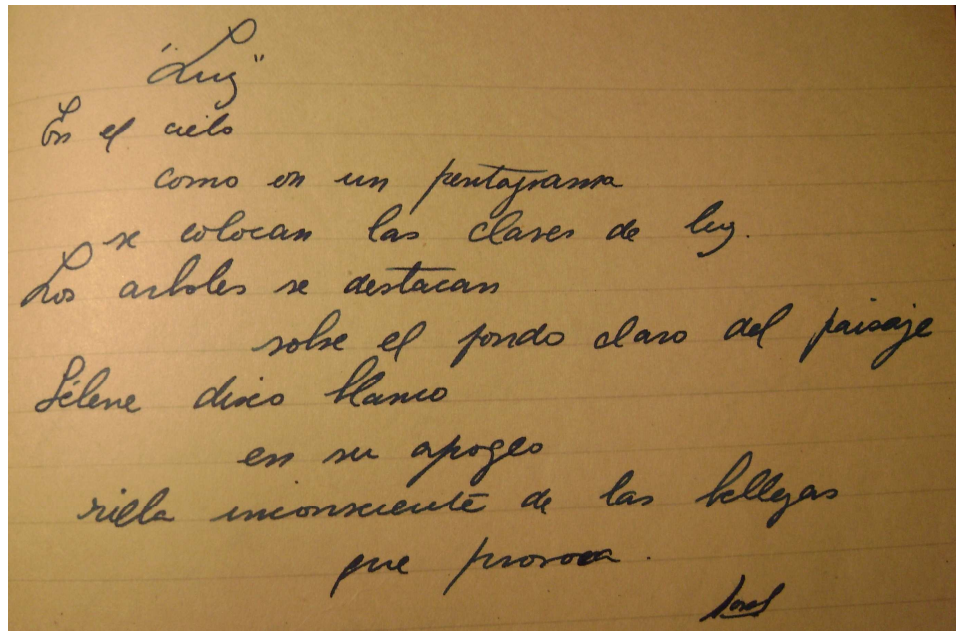 "Luz"
En el cielo
como en un pentagrama
se colocan las claves de luz.
Los arboles se destacan
sobre el fondo claro del paisaje
Sélene disco blanco
en su apogeo
riela inconsciente de las bellezas
que provoca.